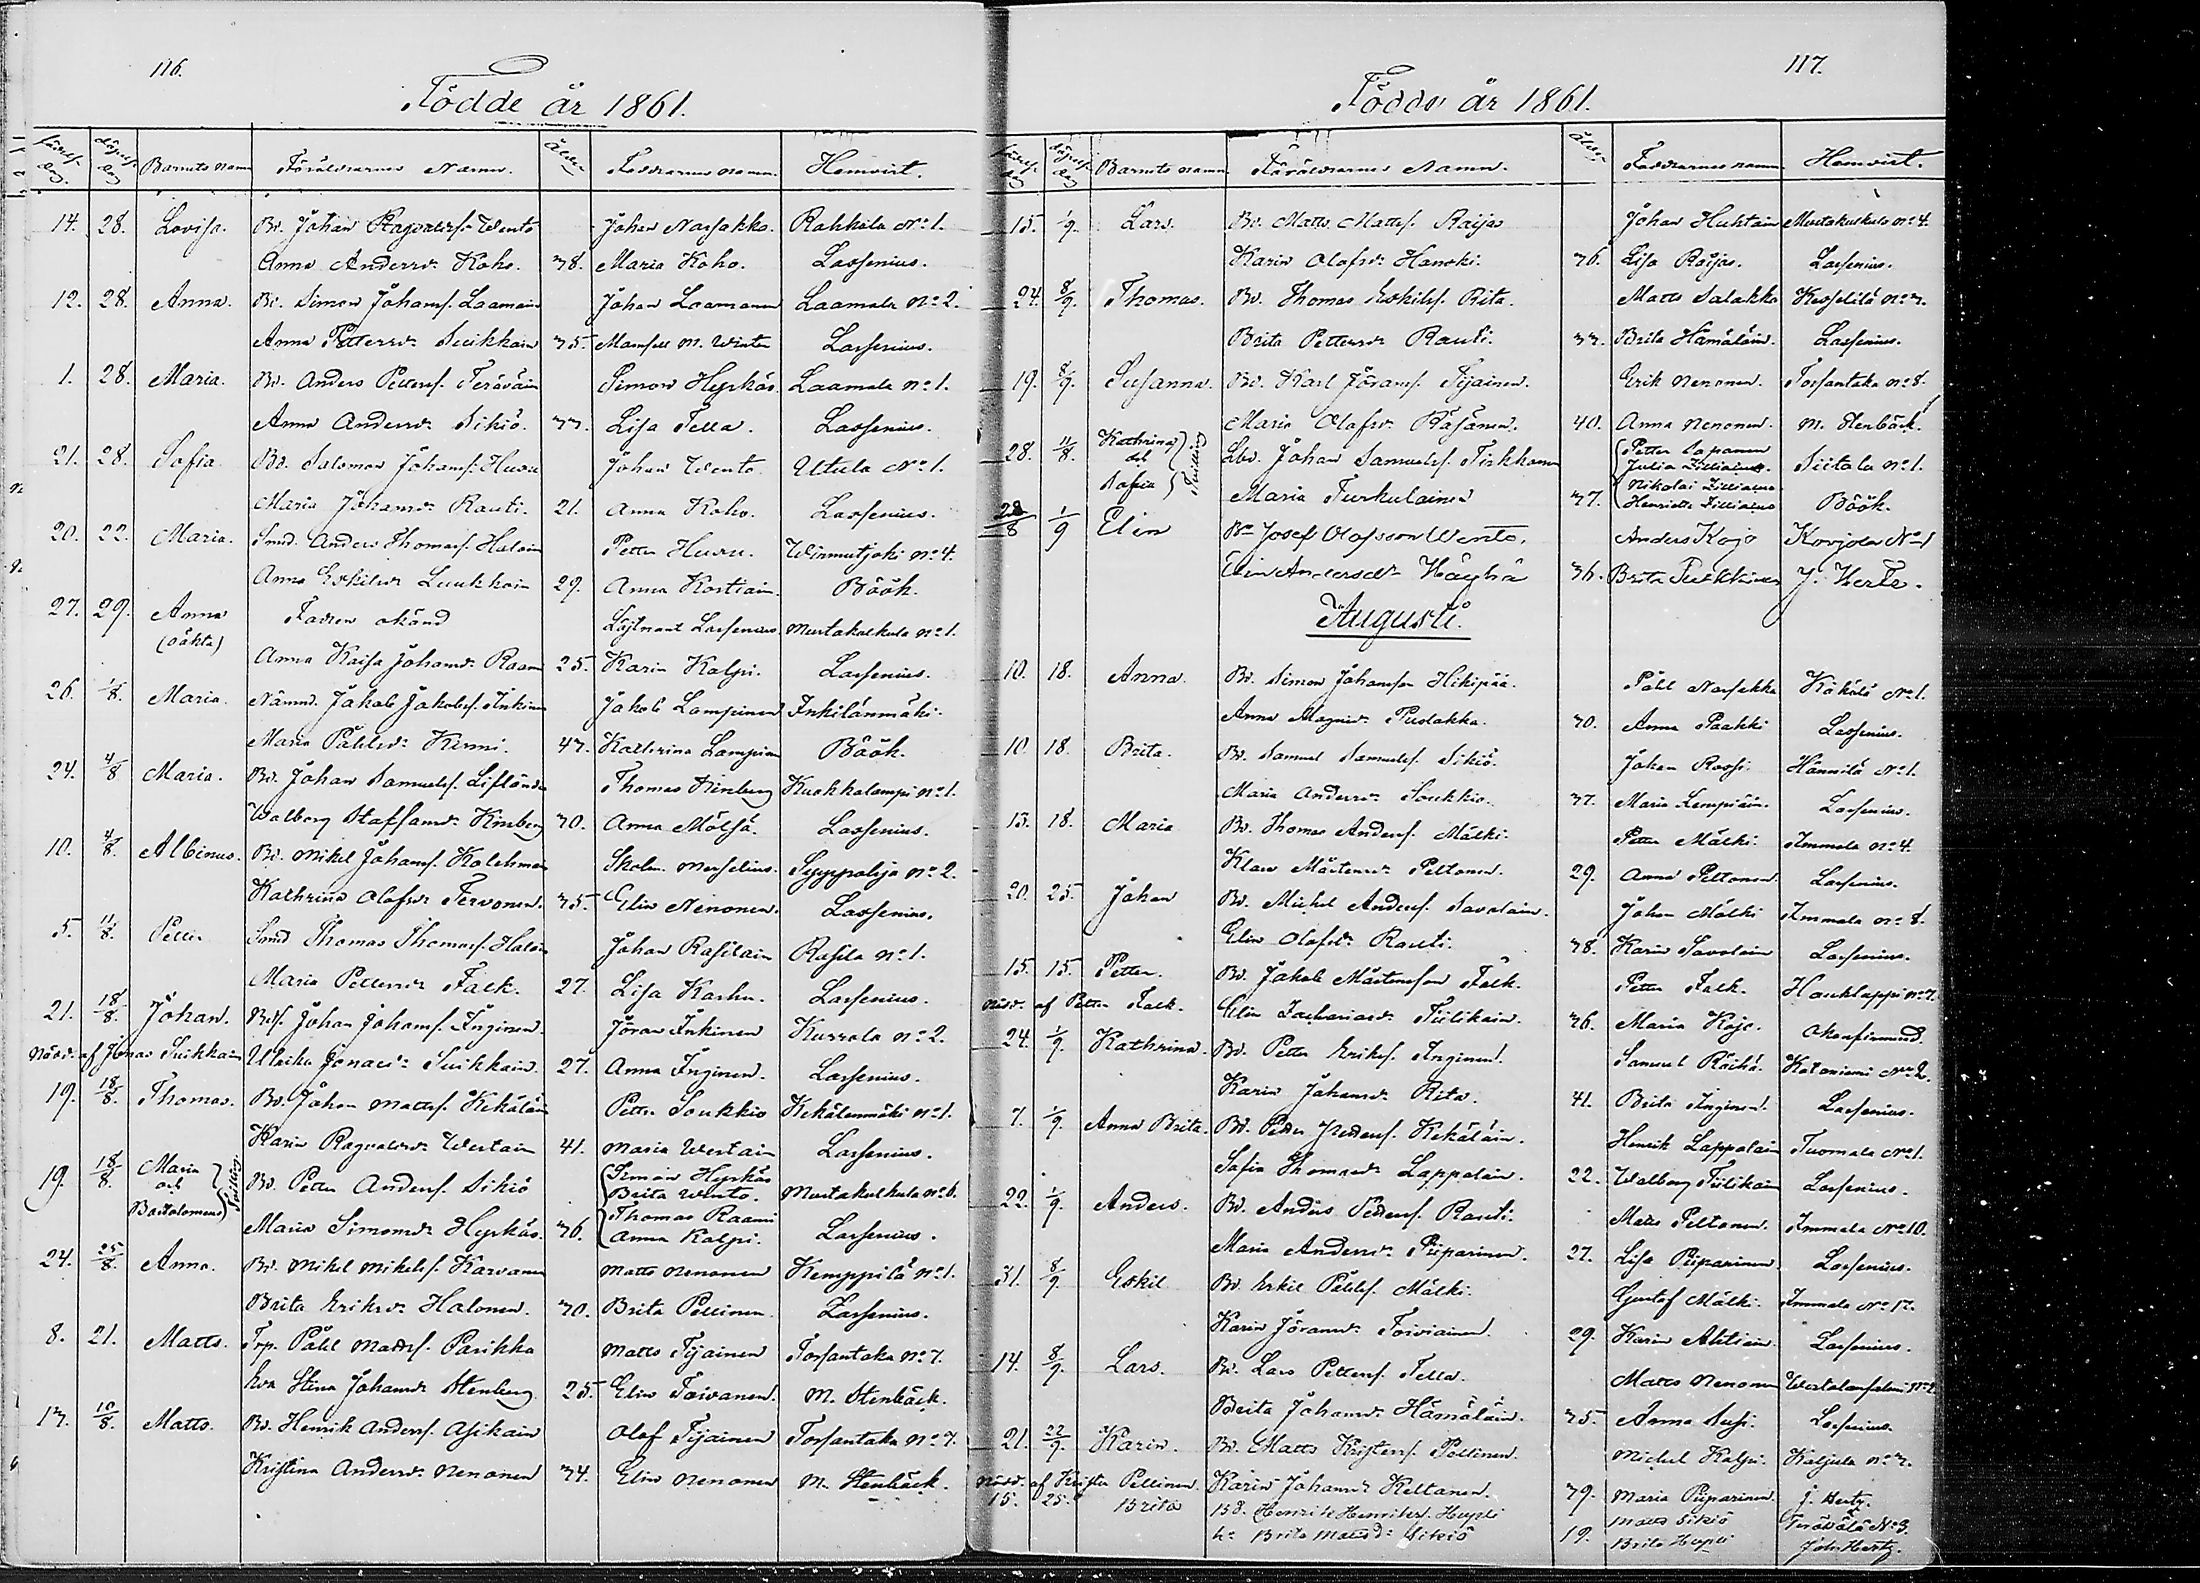 116.
Födde år 1861.
Födelsedag
dag
Barnets namn
Föräldrarnes Namn.
Ålder
Faddrarnes namn.
Hemvist.
14. 28. Lovisa. Bd. Johan Wento Johan Nassakko. Rahkola No 1.
Anna Andersdr Koho. 38. Maria Koho. Lassenius.
12. 28. Anna. Bd. Simon Johansf. Laamain Johan Laamanen Laamala No 2.
Anna Pettersdr Suikkain 35. Mamsell M. Winter Lassenius.
1. 28. Maria. Bd. Anders Pettersf. Teräväin Simon Hyrkäs. Laamala No 1.
Anna Andersdr Sikiö. 33. Lisa Tella. Lassenius.
21. 28. Sofia Bd. Salomon Johansf. Huuu Johan Wento. Utula No 1.
Maria Johansdr Rauti. 21. Anna Koho. Lassenius.
20. 22. Maria. Smed. Anders Thomasf. Halain Petter Huuu. No 4.
Anna Eskilsdr Luukkain 29. Anna Kostiain. Böök.
27. 29. Anna Fadren okänd Löjtnant Lassenius Mustakulkula No 1.
(oäkta)
Anna Kaisa Johansdr Raam 25. Karin Kalpi. Lassenius.
26. 1/8. Maria. Nämnd. Jakob Jakobsf. Inkinen Jakob Lampinen Inkilänmäki.
Maria Påhlsdr Kinni. 43. Kathrina Lampinen Böök.
24. 4/8 Maria. Bd. Johan Samuelsf. Lifländer Thomas Kinberg Kuokkalampi No 1.
Walborg Staffansdr Kinberg 30. Anna Mölsä. Lassenius.
10. 4/8. Albinus. Bd. Mikel Johansf. Kolehmain Skolm. Syyspohja No 2.
Kathrina Olofsdr Tervonen. 35. Elin Nenonen. Lassenius.
5. 11/8. Petter Smed Thomas Thomasf. Halain Johan Rasilain Rasila No 1.
Maria Pettersdr Falk. 27. Lisa Karhu. Lassenius.
21. 18/8. Johan. Johan Johansf. Inginen. Jöran Inkinen Kurrala No 2.
Nödd. af Jonas Suikkain Ulrika Jonasdr Suikkain. 27. Anna Inginen. Lassenius.
19. 18/8. Thomas. Bd. Johan Mattsf. Kekäläin Petter Soukkio Kekälenmäki No 1.
Karin Ragvaldsdr Wertain 41. Maria Wertain Lassenius.
19. 18/8. Maria och Bartolomeus tvilling Bd. Petter Andersf. Sikiö Simon Hyrkäs
Brita Wento. Mustakulkula No 6.
Maria Simonsdr Hyrkäs. 36. Thomas Raami
Anna Kalpi. Lassenius.
24. 25/8. Anna. Bd. Mikel Mikelsf. Karvanen Matts Nenonen Kemppilä No 1.
Brita Eriksdr Halonen. 30. Brita Pellinen. Lassenius.
8. 21. Matts. Trp. Påhl Mattsf. Parikka Matts Tijainen Torsantaka No 7.
Eva Stina Johansdr Stenberg 25. Elin Toivanen. M. Stenbäck.
13. 10/8. Matts. Bd. Henrik Andersf. Asikain Olof Tijainen Torsantaka No 7.
Kristina Andersdr Nenonen 34. Elin Nenonen M. Stenbäck.
117.
Födde år 1861.
dag
dag
Barnets namn
Föräldrarnes Namn.
Ålder
Faddrarnes namn
Hemvist.
15. 1/9. Lars. Bd. Matts Mattsf. Raijas Johan Huhtain Mustakulkula No 4.
Karin Olofsdr Hanski. 36. Lisa Raijas. Lassenius.
24. 8/9. Thomas. Bd. Thomas Eskilsf. Rita. Matts Salakka Kesseliä No 3.
Brita Pettersdr Rauti. 33. Brita Hämäläin. Lassenius.
19. 8/9. Susanna. Bd. Karl Jöransf. Tijainen. Erik Nenonen. Torsantaka No 8.
Maria Olofsdr Räsänen. 40. Anna Nenonen. M. Stenbäck.
28. 11/8. Kathrina och Sofia Tvilling Lbd. Johan Samuelsf. Tirkkonen Petter Saparnen
Julia Zilliacus. Siitala No 1.
Maria Turkulainen 37. Nikolai Zilliacus
Henriette Zilliacus Böök.
28/8 1/9 Elin Bn Josef Olofsson Wento, Anders Kojo Korjola No 1
Elin Andersdr Häyhä 36. Brita Tiukkinen J. Hertz.
Augusti.
10. 18. Anna. Bd. Simon Johansson Hikipää. Påhl Nassakka Käkölä No 1.
Anna Magnisdr Pusdakka. 30. Anna Paakki Lassenius.
10. 18. Brita. Bd. Samuel Samuelsf. Sikiö. Johan Rossi. Hännilä No 1.
Maria Andersdr Soukkio. 37. Maria Lempiäin. Lassenius.
13. 18. Maria Bd. Thomas Andersf. Mälki. Petter Mälki. Immola No 4.
Klara Mårtensdr Peltonen. 29. Anna Peltonen. Lassenius.
20. 25. Johan Bd. Michel Andersf. Savolain. Johan Mälki Immola No 8.
Elin Olofsdr Rauti. 38. Karin Savolain Lassenius.
15. 15. Petter. Bd. Jakob Mårtensson Falk. Petter Falk. Hauklappi No 7.
Nödd. af Petter Falk. Elin Zachariasdr Tiilikain. 36. Maria Kojo. Okonfirmerad.
24. 1/9. Kathrina. Bd. Petter Eriksf. Inginen. Samuel Räihä. Kotoniemi No 2.
Karin Johansdr Rita. 41. Brita Inginen. Lassenius.
7. 1/9. Anna Brita. Bd. Petter Pettersf. Kekäläin. Henrik Lappalain Tuomala No 1.
Sofia Thomasdr Lappalain. 22. Walborg Tiilikain Lassenius.
22. 1/9. Anders. Bd. Anders Pettersf. Rauti. Matts Peltonen. Immola No 10.
Maria Andersdr Piiparinen. 27. Lisa Piiparinen. Lassenius.
31. 8/9. Eskil Bd. Eskil Påhlsf. Mälki. Gustaf Mälki. Immola No 12.
Karin Jöransdr Toiviainen. 29. Karin Ahtiain. Lassenius.
14. 8/9. Lars. Bd. Lars Pettersf. Tella. Matts Nenonen
Brita Johansdr Hämäläin. 35. Anna Susi. Lassenius.
21. 22/9. Karin. Bd. Matts Kristersf. Pellinen. Michel Kalpi. Kaljula No 3.
Nödd. af Krister Pellinen. Karin Johansdr Keltanen. 39. Maria Piiparinen. J. Hertz.
15. 25. Brita Bd. Henrik Henriksf. Hupli Matts Sikiö Terävälä No 3.
h. Brita Mattsdr Sikiö 19. Brita Hupli Joh. Hertz.